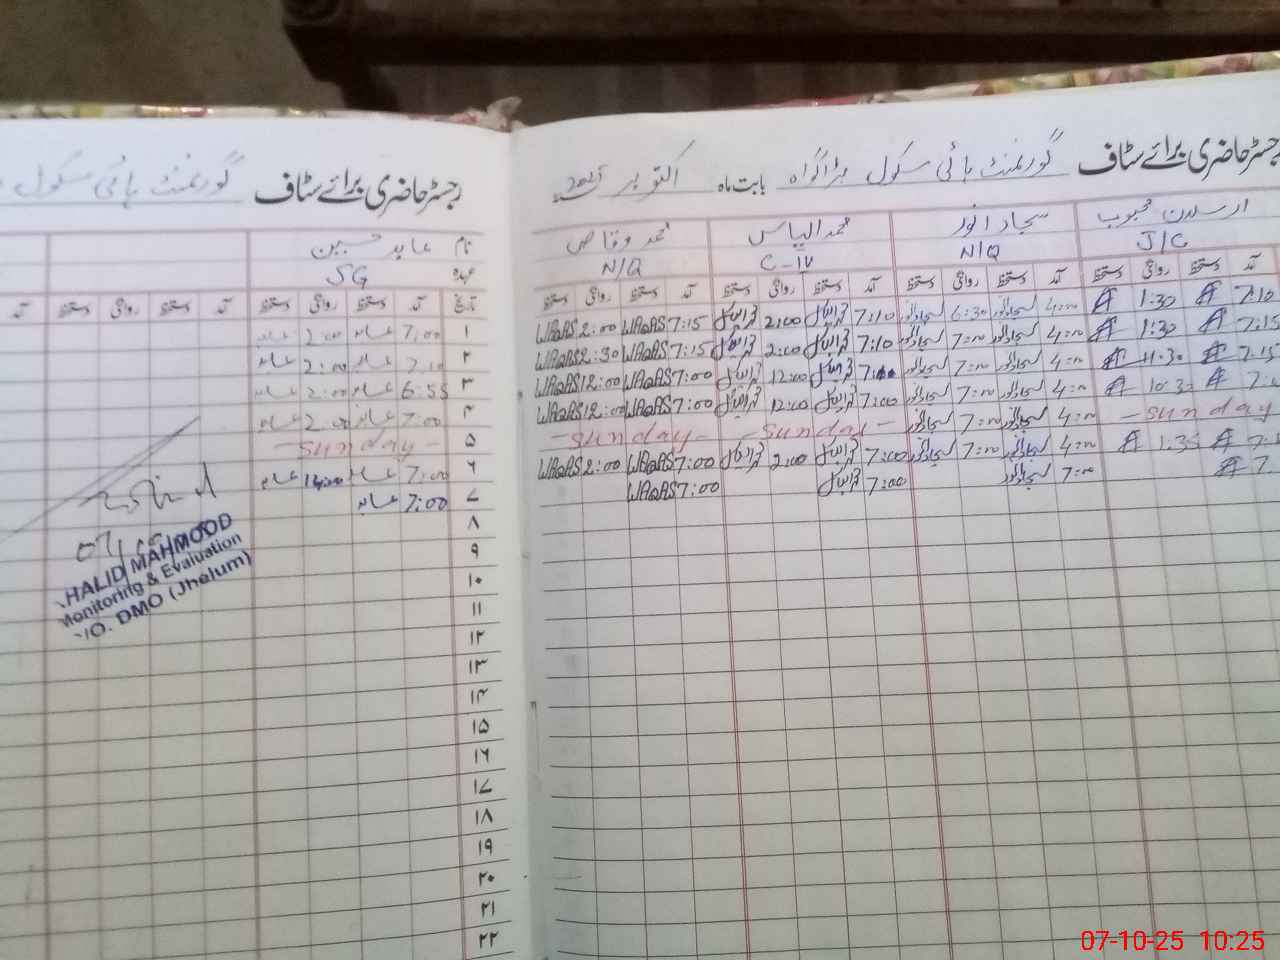 رجسٹر حاضری برائے سٹاف گورنمنٹ ہائی سکول بابت ماہ اکتوبر
ارسلان محبوب سجاد انور محمد الیاس محمد وقاص
J/C N/Q C-IV N/Q
آمد دستخط روانگی دستخط آمد دستخط روانگی دستخط آمد دستخط روانگی دستخط آمد دستخط روانگی دستخط
7:10 1:30 4:00 6:30 7:10 2:00 7:15 WAQAS 2:00 WAQAS
7:15 1:30 4:00 7:00 7:10 2:00 7:15 WAQAS 2:30 WAQAS
7:15 11:30 4:00 7:00 7:00 12:00 7:00 WAQAS 12:00 WAQAS
10:30 4:00 7:00 7:00 12:00 7:00 WAQAS 12:00 WAQAS
- Sunday 4:00 7:00 - Sunday - - Sunday -
1:35 4:00 7:00 7:00 2:00 7:00 WAQAS 2:00 WAQAS
7:00 7:00 7:00 WAQAS
رجسٹر حاضری برائے سٹاف گورنمنٹ ہائی سکول
نام عابد حسین
عہدہ SG
تاریخ آمد دستخط روانگی دستخط آمد دستخط روانگی دستخط آمد
۱ 7:00 عابد 2:00 عابد
۲ 7:10 عابد 2:00 عابد
۳ 6:55 عابد 2:00 عابد
۴ 7:00 عابد 2:00 عابد
۵ - Sunday -
۶ 7:00 عابد عابد
۷ 7:00 عابد
۸
۹
۱۰
۱۱
۱۲
۱۳
۱۴
۱۵
۱۶
۱۷
۱۸
۱۹
۲۰
۲۱
۲۲
HALID MAHMOOD
Monitoring & Evaluation
O. DMO (Jhelum)
07-10-25 10:25